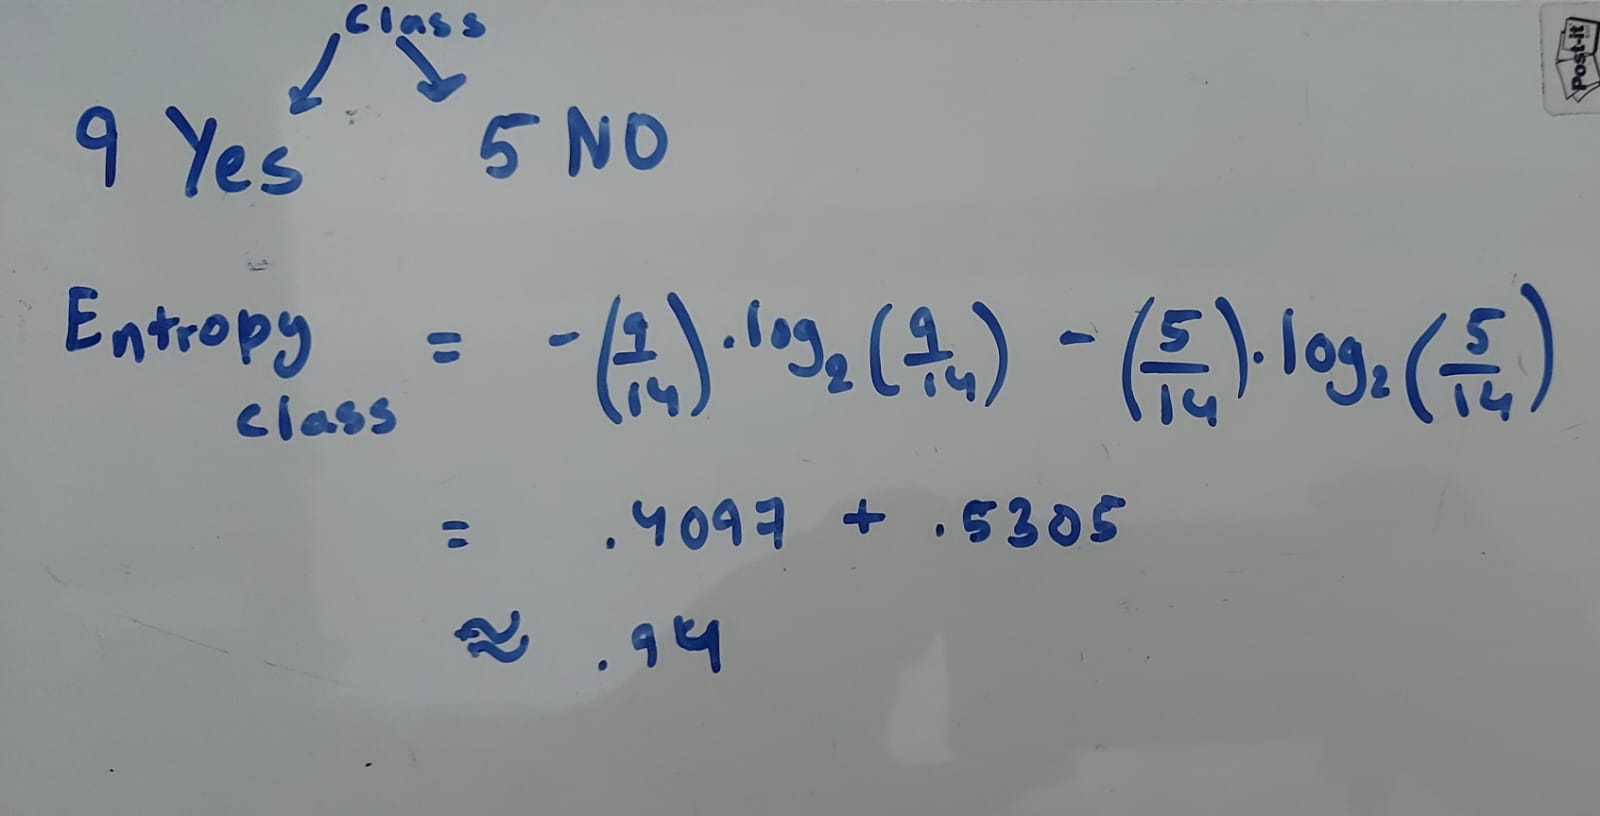 class
9 Yes 5 NO
Entropy class = -(9/14) . log₂(9/14) - (5/14) . log₂(5/14)
= .4097 + .5305
≈ .94
Post-it